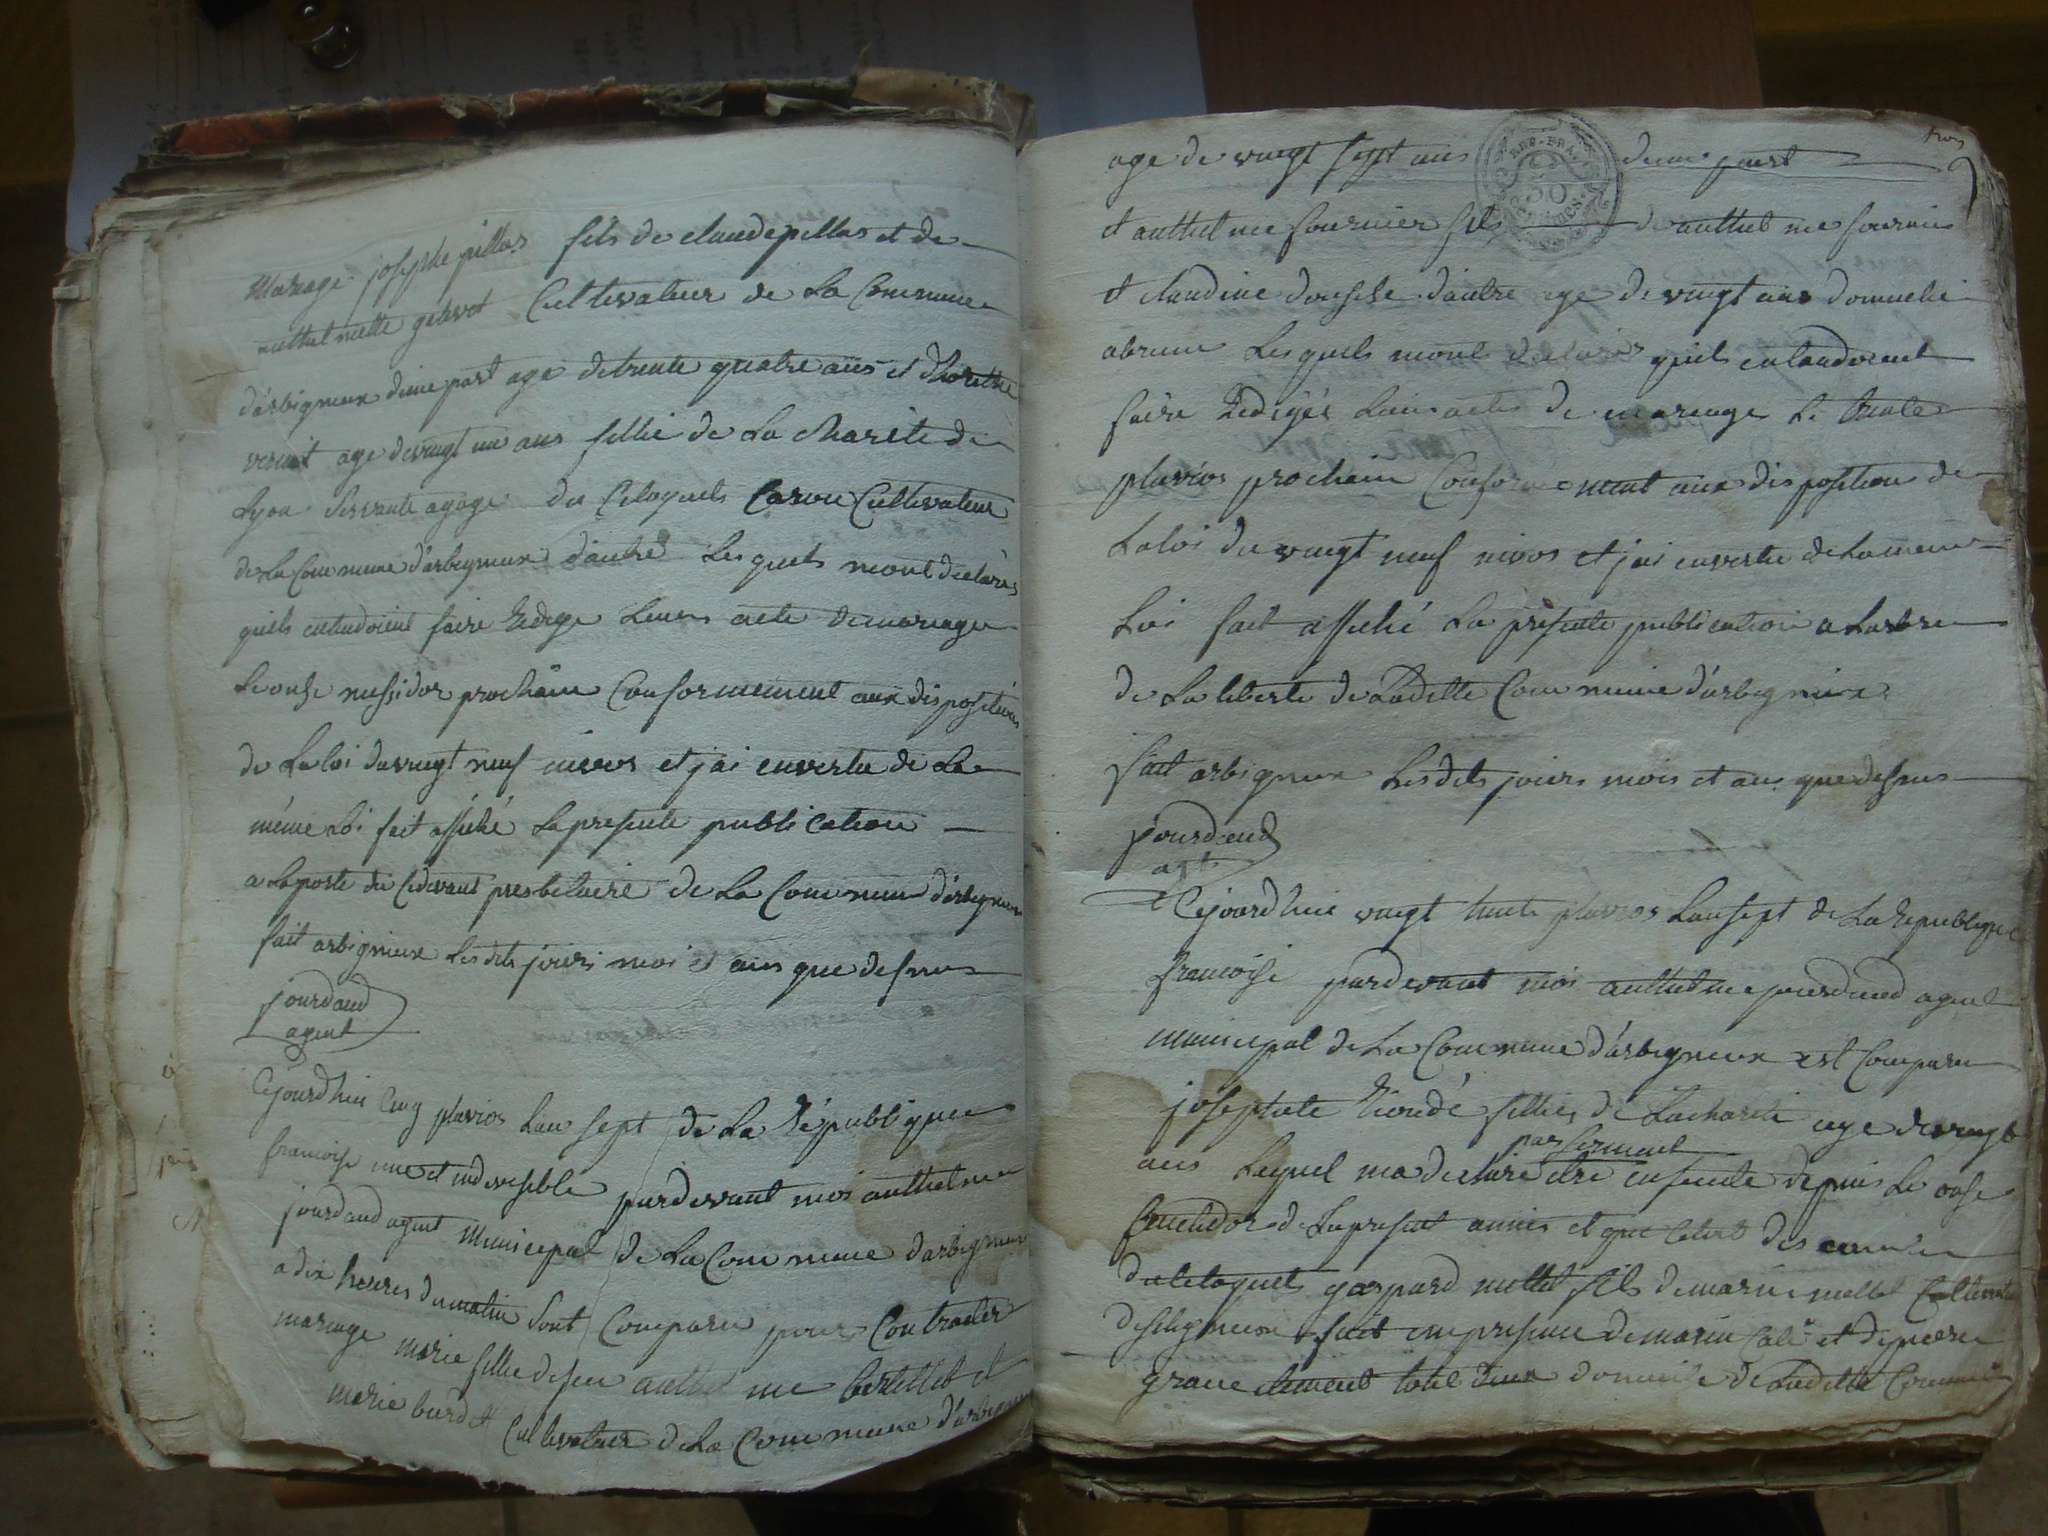 Mariage josephe pillas fils de claude pillas et de
anthelmette Cultivateur de La Commune
d'arbigneux dune part age de trente quatre ans et
age de vingt un ans fillie de La charite de
Lyon servante agage du Citoyens Cultivateur
de La Commune d'arbigneux d'autre Les quels mont declarés
quils entendoient faire Redige Leurs acte de mariage
Le onse messidor prochain Conformement aux dispositions
de La loi du vingt neuf nivos et jai envertu de La
même Loi fait affiché La presente publication
a La porte du Cidevant presbitaire de La Commune d'arbigneux
fait arbigneux Les dits jours moi et ans que dessus
jourdand
agent
Cejourdhui Cinq pluvios Lan sept de La République
francoise une et indivisible pardevant moi anthelme
jourdand agent Municipal de La Commune darbigneux
a dix heures du matin Sont Comparu pour Contracter
mariage marie fillie de feu anthelme et
marie Cultivateur de La Commune d'arbigneux
trois
age de vingt sept ans dune part
REP. FRA.
50
CENTIMES
et anthelme fournier fils de anthelme fournier
et claudine d'autre age de vingt ans domicilié
Les quels mont declarés quils entandoient
faire Redigés Leurs actes de mariage Le trente
pluvios prochain Conformement aux disposition de
La loi du vingt neuf nivos et jai envertu de La meme
Loi fait affiché La presente publication a Larbre
de La liberté de Laditte Commune d'arbigneux
fait arbigneux Les dits jours mois et ans que dessus
jourdand
agt
Cejourdhui vingt pluvios Lan sept de La Republique
francoise pardevant moi anthelme jourdand agent
municipal de La Commune d'arbigneux est Comparu
josephte fillies de Lacharite age de vingt
par serment
ans Laquel ma declaré etre enseinte depuis Le onse
de La present année et que Cetoit des
du Citoyens gaspard mettet fils de marin mettet Cultivateur
fait en presence de marin et de pierre
domicilié de Laditte Commune